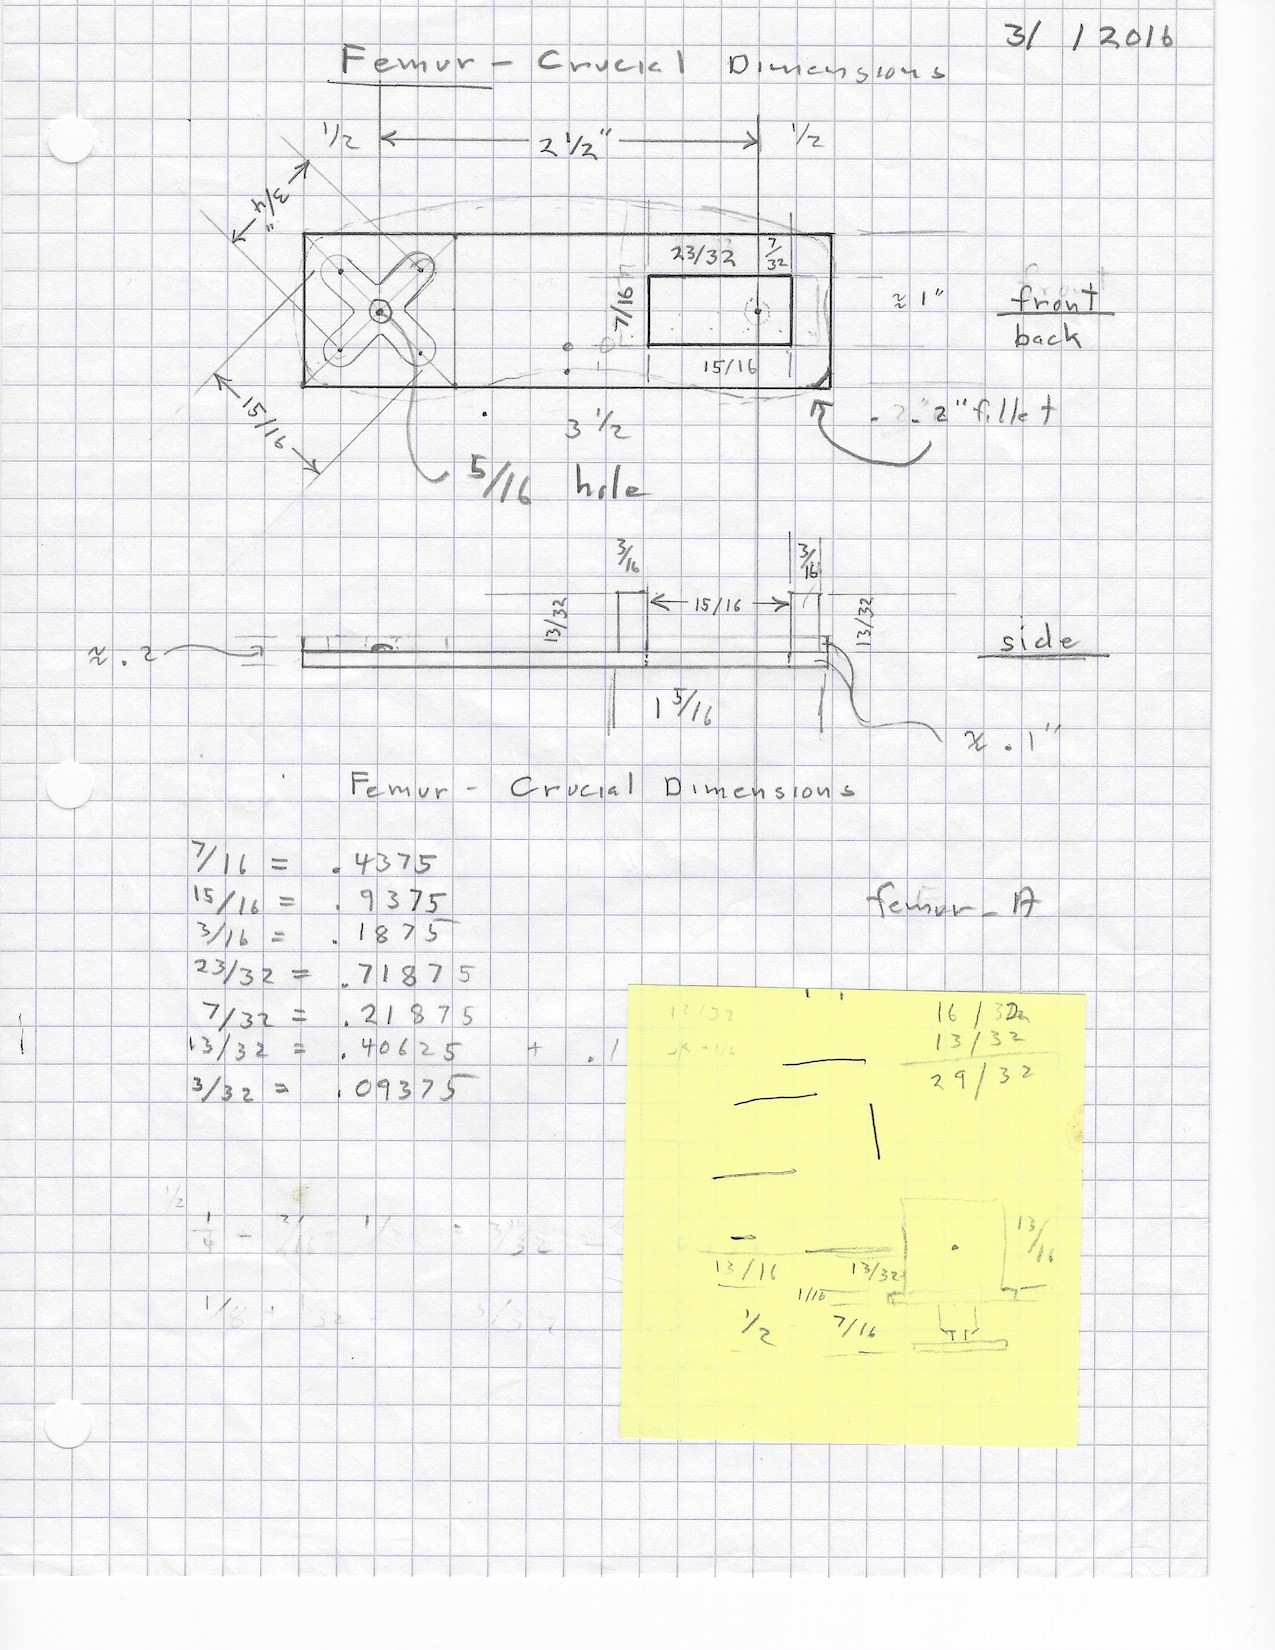 3/ / 2016
Femur - Crucial Dimensions
1/2 2 1/2" 1/2
3/4"
23/32 7/32
7/16
≈ 1" front
back
15/16
. 2" fillet
15/16
3 1/2
5/16 hole
3/16 3/16
13/32 15/16 13/32
≈ .2
side
1 5/16
≈ .1"
Femur - Crucial Dimensions
7/16 = .4375
15/16 = .9375
femur_A
3/16 = .1875
23/32 = .71875
7/32 = .21875
13/32 = .40625 + .1
3/32 = .09375
16/32
13/32
29/32
13/16
13/16 13/32
1/16
1/2 7/16